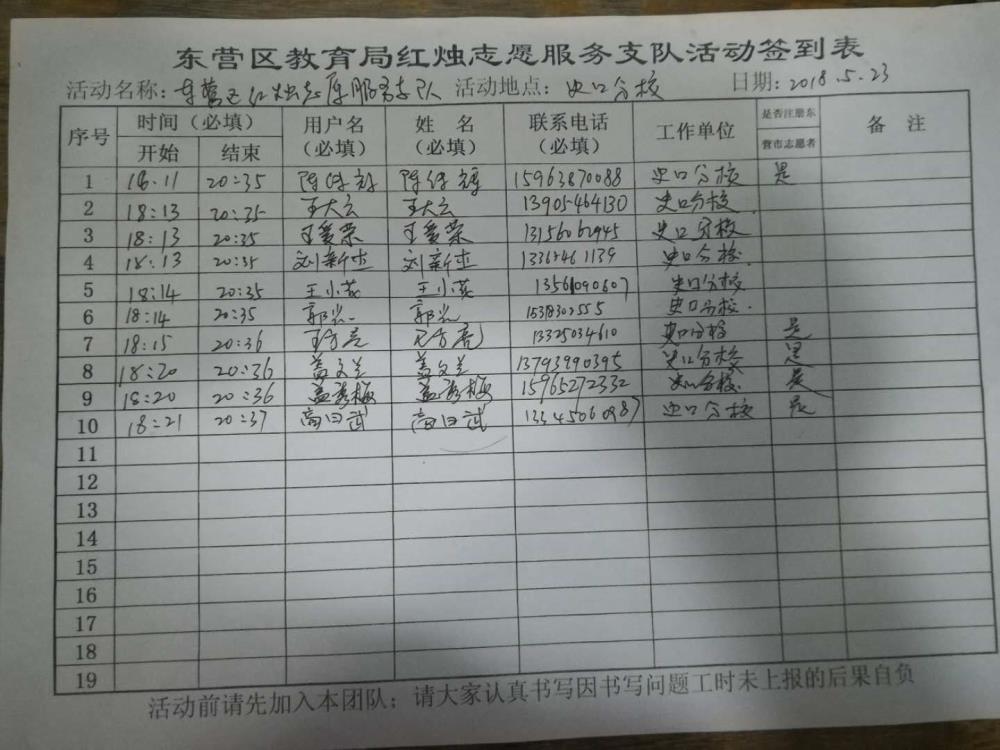 东营区教育局红烛志愿服务支队活动签到表
活动名称：东营区红烛志愿服务支队 活动地点：史口分校 日期：2018.5.23
序号 时间（必填） 用户名（必填） 姓 名（必填） 联系电话（必填） 工作单位 是否注册东营市志愿者 备 注
开始 结束
1 18:11 20:35 15963870088 史口分校 是
2 18:13 20:35 王大云 王大云 13905464130 史口分校
3 18:13 20:35 王爱荣 王爱荣 13156062945 史口分校
4 18:13 20:35 刘新忠 刘新忠 史口分校.
5 18:14 20:35 王小燕 王小燕 13561090607 史口分校
6 18:14 20:35 郭光 郭光 史口分校.
7 18:15 20:36 13325034610 史口分校 是
8 18:20 20:36 盖文兰 盖文兰 13793990395 史口分校 是
9 18:20 20:36 盖秀梅 盖秀梅 15965272332 史口分校 是
10 18:21 20:37 高曰武 高曰武 史口分校 是
11
12
13
14
15
16
17
18
19
活动前请先加入本团队；请大家认真书写因书写问题工时未上报的后果自负